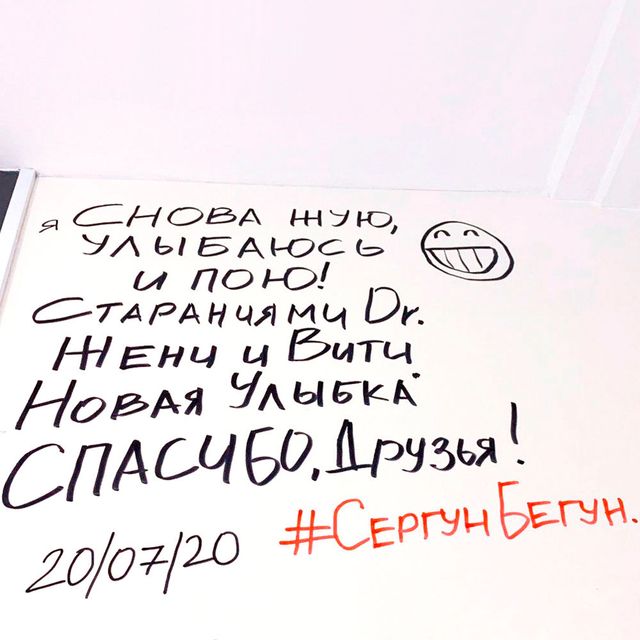 я СНОВА ЖУЮ,
УЛЫБАЮСЬ
И ПОЮ!
СТАРАНИЯМИ Dr.
ЖЕНИ И ВИТИ
НОВАЯ УЛЫБКА
СПАСИБО, ДРУЗЬЯ!
#СЕРГУНБЕГУН.
20/07/20